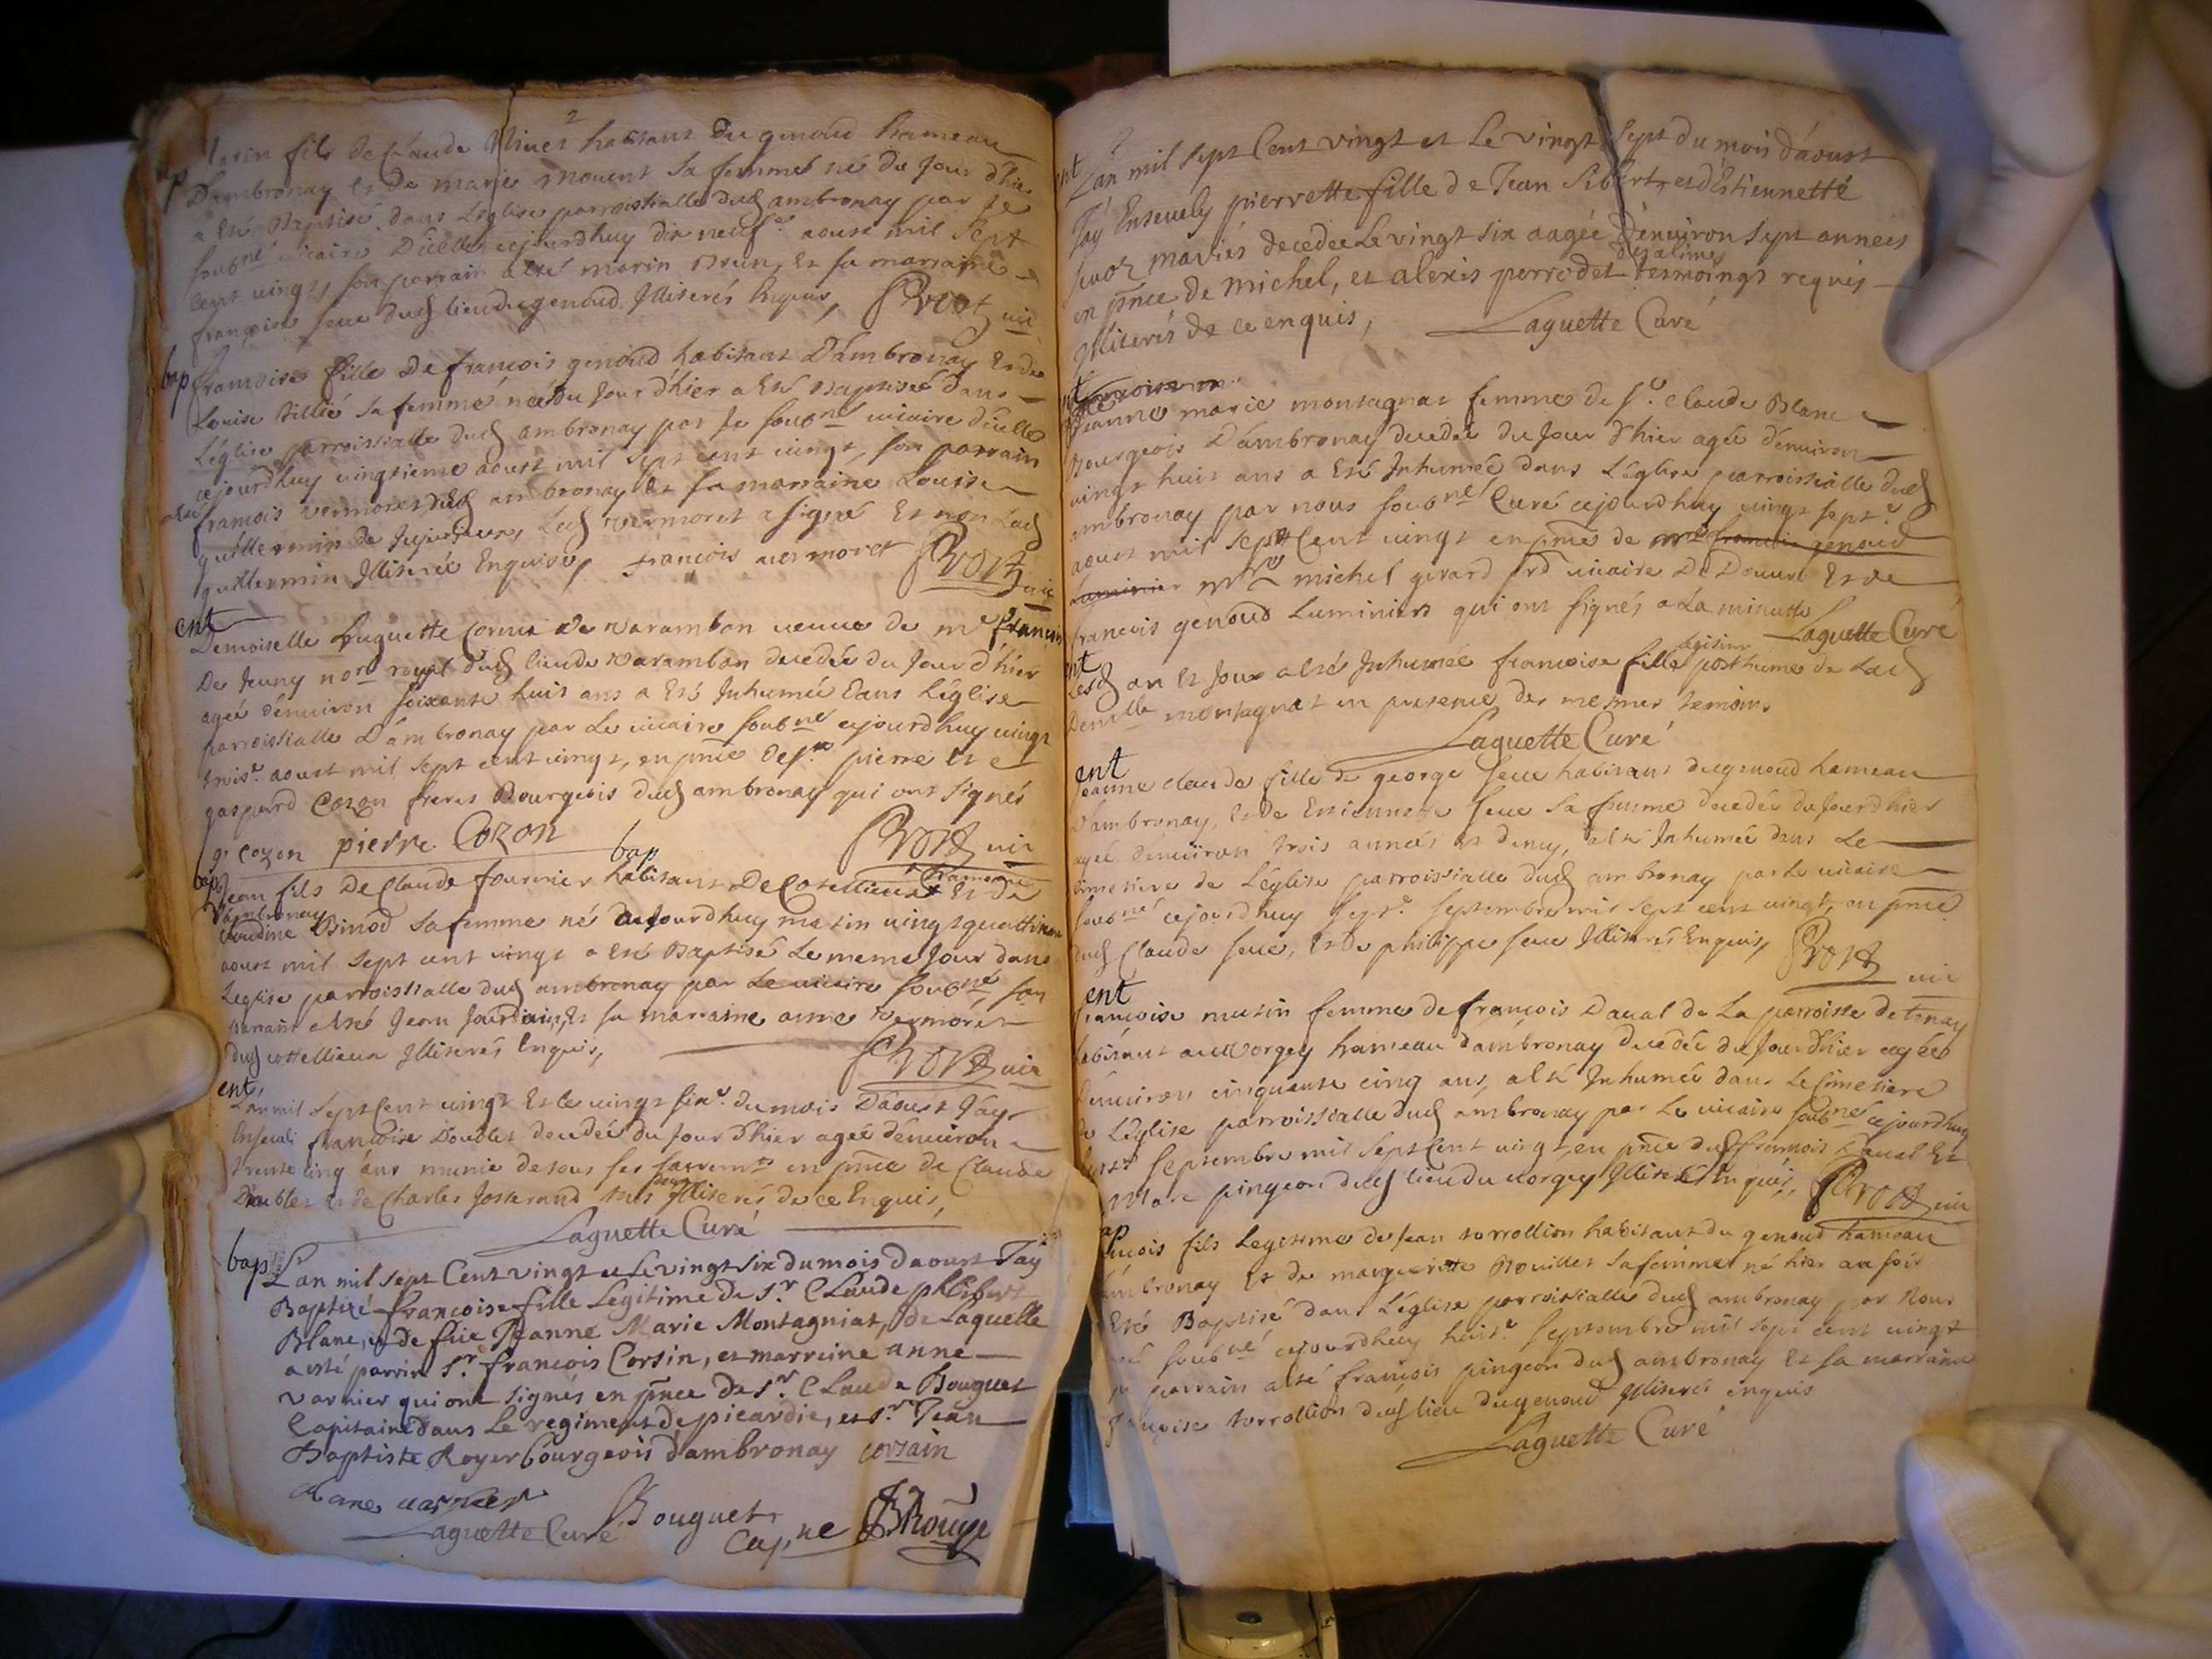 2
bap
Marin fils de Claude habitant du genoud hameau
D'ambronay et de marie mouent sa femme né du Jour d'hier
a Esté Baptisé dans L'eglise parroissialle dud ambronay par Je
soubné vicaire D'icelle cejourdhuy dix neuf.e aoust mil sept
cent vingt, son parrain a esté marin Brun, Et sa marraine
françoise seue dud lieu du genoud Illiterés Enquis, Prost vic
bap
francoise fille De francois genoud habitant D'ambronay Et de
Louise Tillié sa femme née du Jour d'hier a Esté Baptisée dans
L'eglise parroissialle dud ambronay par Je soubné vicaire d'icelle
cejourd'huy vingtieme aoust mil sept cent vingt, son parrain
a esté francois vermoret dud ambronay Et sa marraine Louise
guillermin de Jujurieux, Led vermoret a signé Et non Lad
guillermin Illiterée Enquise, françois vermoret Prost vic
ent
Demoiselle huguette Cornu de varambon veuve de m.e francois
De Jeuny no.re royal dud lieu de varambon decedée du Jour d'hier
ageé d'environ soixante huit ans a Eté Inhumée dans L'église
parroissialle D'ambronay par Le vicaire soubné cejourd'huy vingt
trois.e aoust mil sept cent vingt, en pnce de s.rs pierre Et
gaspard Cozon freres Bourgeois dud ambronay qui ont signés
g. cozon pierre Cozon Prost vic
bap bap
Jean fils De Claude fournier habitant De Cotellieux hameau Et de
d'ambronay
Claudine Binod sa femme né aujourd'huy matin vingtquattrieme
aoust mil sept cent vingt a Esté Baptisé Le meme Jour dans
L'eglise parroissialle dud ambronay par Le vicaire soubné, son
parrain a esté Jean Jourdain, Et sa marraine anne vermoret
dud cottellieux Illiterés Enquis, Prost vic
ent
L'an mil sept Cent vingt Et le vingt six.e du mois D'aoust J'ay
Enseveli francoise Doublet decedée du Jour d'hier ageé d'environ
trente cinq ans munie de tous ses sacrem.ts en pnce de Claude
Doublet et de Charles Josserand Illiterés de ce Enquis,
Laguette Curé
bap
L'an mil sept Cent vingt et Le vingt six du mois Daoust J'ay
Baptizé francoise fille Legitime de S.r Claude philibert
Blanc, et de füe Jeanne Marie Montagniat, de Laquelle
a esté parrin S.r francois Corsin, et marreine anne
varnier qui ont signés en pnce de S.r Claude Bouguet
Capitaine dans Le regiment de picardie, et S.r Jean
Baptiste Royer bourgeois d'ambronay corsain
Bouguet
Laguette Curé Cap.ne
ent
L'an mil sept Cent vingt et Le vingt sept du mois d'aoust
J'ay Ensevely pierrette fille de Jean Sibert, et d'Estiennette
mariés decedée Le vingt six aagée D'environ sept années
en pnce de michel, et alexis perrodet tesmoings requis
Illiterés de ce enquis, Laguette Curé
ent
Jeanne marie montagnat femme de s.r claude Blanc
Bourgeois D'ambronay decedée du Jour d'hier agée d'environ
vingt huit ans a Esté Inhumée dans L'église parroissialle dud
ambronay par nous soubné Curé cejourdhuy vingt sept.e
aoust mil sept Cent vingt en pnce de m.re francois genoud
luminier m.re michel girard vicaire De Douvre Et de
francois genoud Luminiers qui ont signés a La minutte
Laguette Curé
ent
Lesd an Et Jour a esté Inhumée francoise fille legitime posthume de Lad
Dem.lle montagnat en presence des mesmes temoins
Laguette Curé
ent
Jeanne claude fille de george seue habitant du genoud hameau
D'ambronay, Et de Estiennette seue sa femme decedée du Jour d'hier
ageé d'environ trois années et demy, a esté Inhumée dans Le
cimetiere de L'église parroissialle dud ambronay par Le vicaire
soubné cejourd'huy sept.e septembre mil sept cent vingt, en pnce
dud Claude seue, Et de philippe seue Illiterés Enquis, Prost vic
ent
francoise mutin femme de francois Daval de La parroisse de tenay
habitant au Vorgey hameau d'ambronay decedée du Jour d'hier agée
d'environ cinquante cinq ans, a esté Inhumée dans Le Cimetiere
de L'église parroissialle dud ambronay par Le vicaire soubné cejourdhuy
sept.e septembre mil sept Cent vingt en pnce dud francois Daval Et
Marc pingeon dud lieu du vorgey Illiterés Enquis, Prost vic
bap
francois fils Legitime de Jean torrollion habitant du genoud hameau
d'ambronay Et de marguerite Bouillet sa femme né hier au soir
a Eté Baptisé dans L'église parroissialle dud ambronay par Nous
curé soubné cejourdhuy huit.e septembre mil sept cent vingt
son parrain a esté françois pingeon dud ambronay Et sa marraine
françoise torrollion dud lieu du genoud Illiterés enquis
Laguette Curé